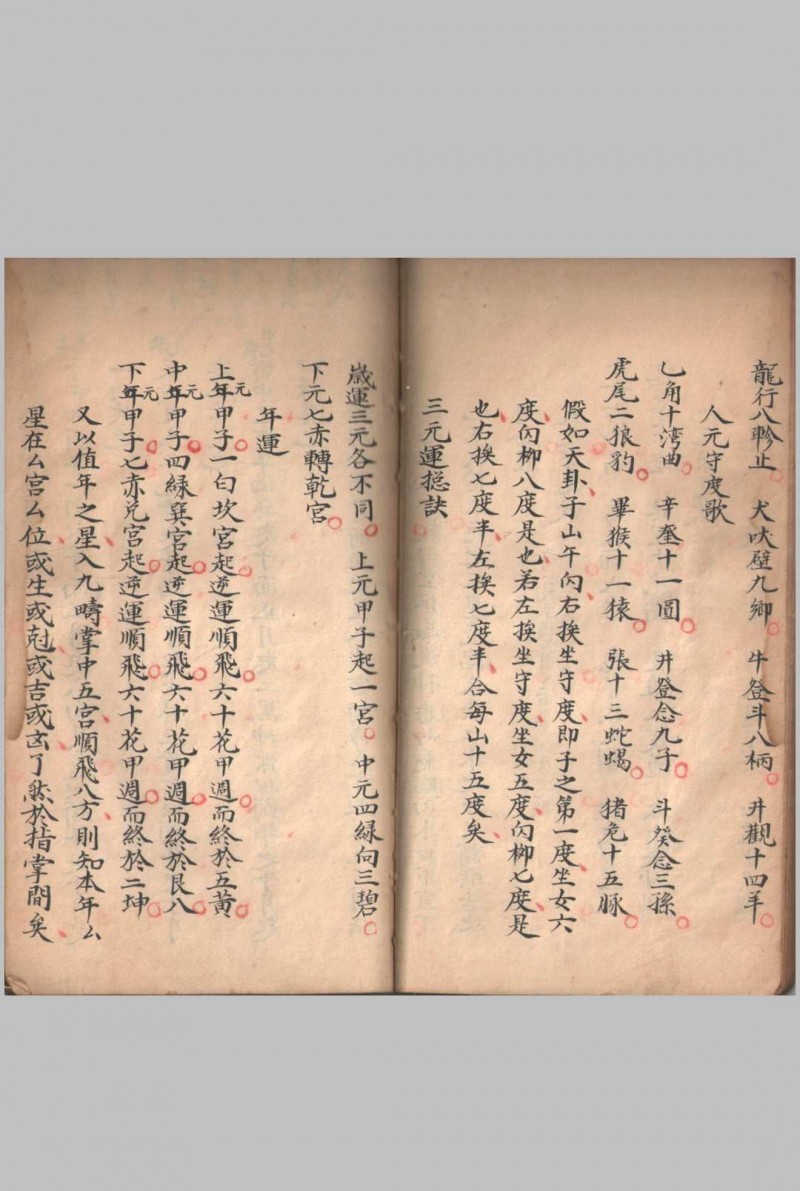 龍行八軫止　犬吠壁九鄉　牛登斗八柄　井觀十四羊
人元守度歌
乙角十湾曲　辛奎十一圓　井登念九子　斗癸念三孫
虎尾二狼豹　畢猴十一猿　張十三蛇蝎　猪危十五豚
假如天卦子山午向右挨坐守度即子之第一度坐女六
度向柳八度是也若左挨坐守度坐女五度向柳七度是
也右挨七度半左挨七度半合每山十五度矣
三元運捴訣
歲運三元各不同　上元甲子起一宮　中元四緑向三碧
下元七赤轉乾宮
年運
上元年甲子一白坎宮起逆運順飛六十花甲週而終於五黄
中元年甲子四緑巽宮起逆運順飛六十花甲週而終於艮八
下元年甲子七赤兑宮起逆運順飛六十花甲週而終於二坤
又以值年之星入九疇掌中五宮順飛八方則知本年厶
星在厶宮厶位或生或尅或吉或㓙了然於指掌間矣